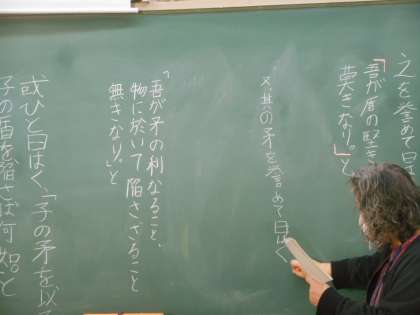 之を誉めて曰
「吾が盾の堅き
莫きなり。」と
又其の矛を誉めて曰はく
「吾が矛の利なること、
物に於いて陥さざること
無きなり。」と
或ひと曰はく、「子の矛を以
子の盾を陥さば何如と